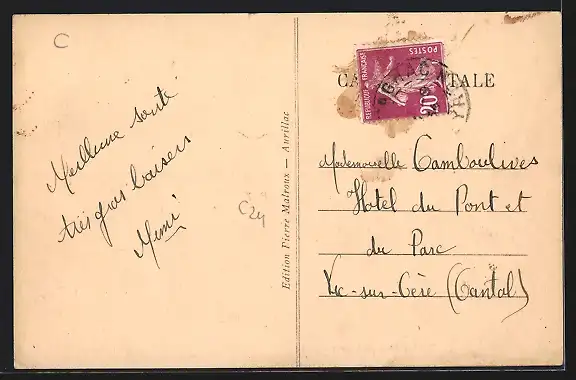 C
Meilleure santé
très gros baisers
Mimi
C24
Edition Pierre Malroux — Aurillac
POSTES
REPUBLIQUE FRANÇAISE
20c
TALE
Mademoiselle Camboulives
Hôtel du Pont et
du Parc
Vic-sur-Cère (Cantal)